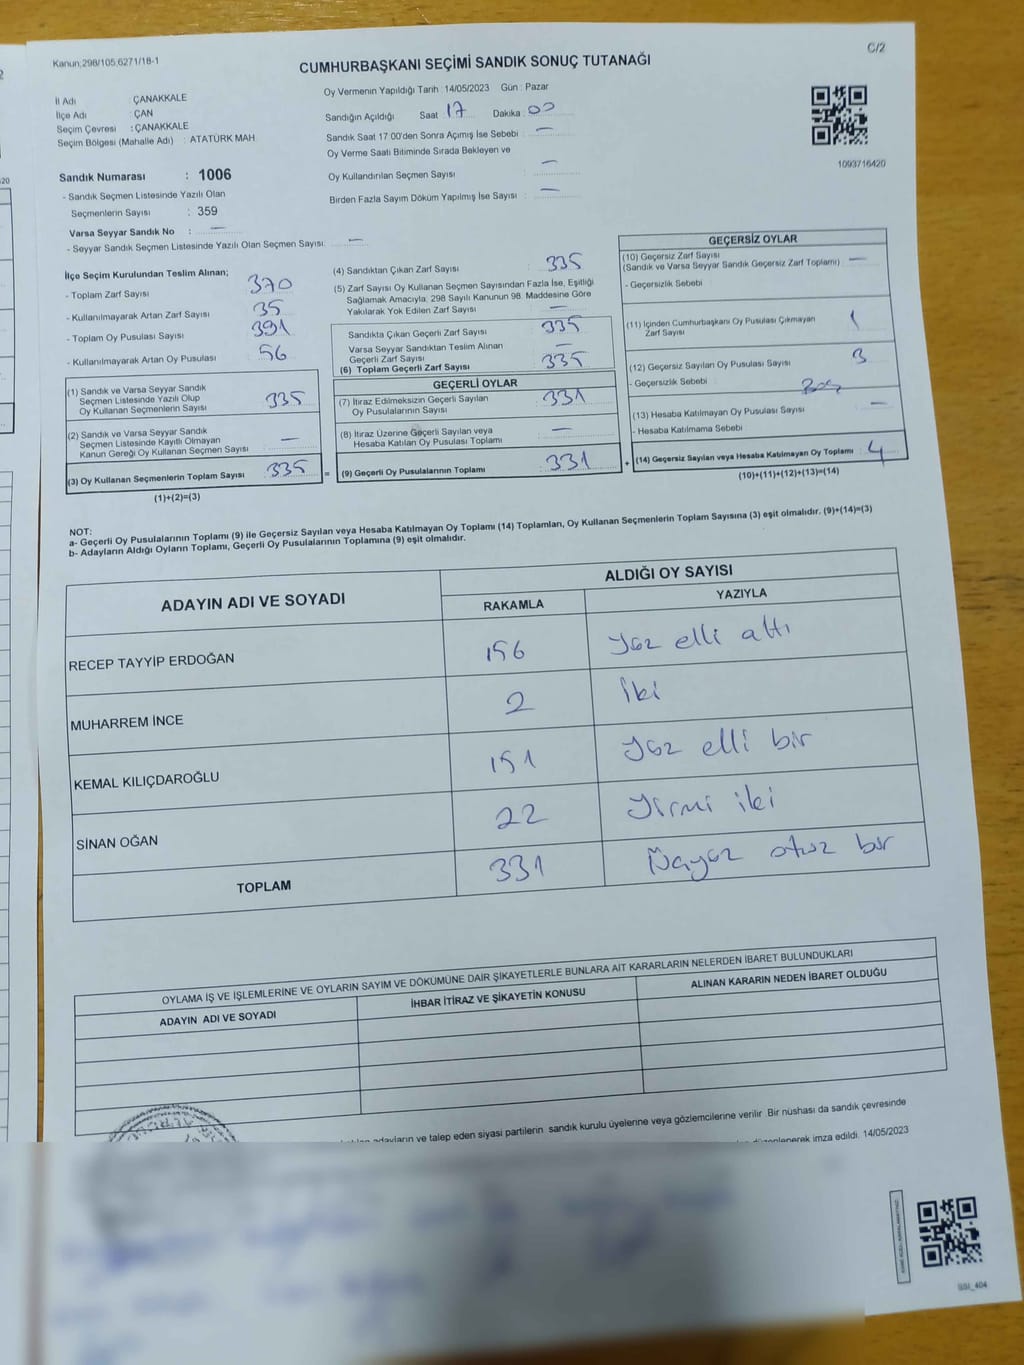 C/2
Kanun:298/105,6271/18-1
CUMHURBAŞKANI SEÇİMİ SANDIK SONUÇ TUTANAĞI
İl Adı : ÇANAKKALE
İlçe Adı : ÇAN
Seçim Çevresi : ÇANAKKALE
Seçim Bölgesi (Mahalle Adı) : ATATÜRK MAH.
Oy Vermenin Yapıldığı Tarih : 14/05/2023 Gün : Pazar
Sandığın Açıldığı Saat : 17 Dakika : 00
Sandık Saat 17:00'den Sonra Açımış İse Sebebi : —
Oy Verme Saati Bitiminde Sırada Bekleyen ve
Oy Kullandırılan Seçmen Sayısı : —
Birden Fazla Sayım Döküm Yapılmış İse Sayısı : —
1093716420
Sandık Numarası : 1006
- Sandık Seçmen Listesinde Yazılı Olan
Seçmenlerin Sayısı : 359
Varsa Seyyar Sandık No : —
- Seyyar Sandık Seçmen Listesinde Yazılı Olan Seçmen Sayısı: —
İlçe Seçim Kurulundan Teslim Alınan;
- Toplam Zarf Sayısı 370
- Kullanılmayarak Artan Zarf Sayısı 35
- Toplam Oy Pusulası Sayısı 391
- Kullanılmayarak Artan Oy Pusulası 56
(1) Sandık ve Varsa Seyyar Sandık
Seçmen Listesinde Yazılı Olup
Oy Kullanan Seçmenlerin Sayısı : 335
(2) Sandık ve Varsa Seyyar Sandık
Seçmen Listesinde Kayıtlı Olmayan
Kanun Gereği Oy Kullanan Seçmen Sayısı : —
(3) Oy Kullanan Seçmenlerin Toplam Sayısı : 335
(1)+(2)=(3)
(4) Sandıktan Çıkan Zarf Sayısı : 335
(5) Zarf Sayısı Oy Kullanan Seçmen Sayısından Fazla İse, Eşitliği
Sağlamak Amacıyla, 298 Sayılı Kanunun 98. Maddesine Göre
Yakılarak Yok Edilen Zarf Sayısı : —
Sandıkta Çıkan Geçerli Zarf Sayısı : 335
Varsa Seyyar Sandıktan Teslim Alınan
Geçerli Zarf Sayısı : —
(6) Toplam Geçerli Zarf Sayısı : 335
GEÇERLİ OYLAR
(7) İtiraz Edilmeksizin Geçerli Sayılan
Oy Pusulalarının Sayısı : 331
(8) İtiraz Üzerine Geçerli Sayılan veya
Hesaba Katılan Oy Pusulası Toplamı : —
= (9) Geçerli Oy Pusulalarının Toplamı : 331
GEÇERSİZ OYLAR
(10) Geçersiz Zarf Sayısı : —
(Sandık ve Varsa Seyyar Sandık Geçersiz Zarf Toplamı)
- Geçersizlik Sebebi
(11) İçinden Cumhurbaşkanı Oy Pusulası Çıkmayan
Zarf Sayısı : 1
(12) Geçersiz Sayılan Oy Pusulası Sayısı : 3
- Geçersizlik Sebebi :
(13) Hesaba Katılmayan Oy Pusulası Sayısı : —
- Hesaba Katılmama Sebebi
+ (14) Geçersiz Sayılan veya Hesaba Katılmayan Oy Toplamı : 4
(10)+(11)+(12)+(13)=(14)
NOT:
a- Geçerli Oy Pusulalarının Toplamı (9) ile Geçersiz Sayılan veya Hesaba Katılmayan Oy Toplamı (14) Toplamları, Oy Kullanan Seçmenlerin Toplam Sayısına (3) eşit olmalıdır. (9)+(14)=(3)
b- Adayların Aldığı Oyların Toplamı, Geçerli Oy Pusulalarının Toplamına (9) eşit olmalıdır.
ADAYIN ADI VE SOYADI ALDIĞI OY SAYISI
RAKAMLA YAZIYLA
RECEP TAYYİP ERDOĞAN 156 Yüz elli altı
MUHARREM İNCE 2 İki
KEMAL KILIÇDAROĞLU 151 Yüz elli bir
SİNAN OĞAN 22 Yirmi iki
TOPLAM 331 Üçyüz otuz bir
OYLAMA İŞ VE İŞLEMLERİNE VE OYLARIN SAYIM VE DÖKÜMÜNE DAİR ŞİKAYETLERLE BUNLARA AİT KARARLARIN NELERDEN İBARET BULUNDUKLARI
ADAYIN ADI VE SOYADI İHBAR İTİRAZ VE ŞİKAYETİN KONUSU ALINAN KARARIN NEDEN İBARET OLDUĞU
adayların ve talep eden siyasi partilerin sandık kurulu üyelerine veya gözlemcilerine verilir. Bir nüshası da sandık çevresinde
düzenlenerek imza edildi. 14/05/2023